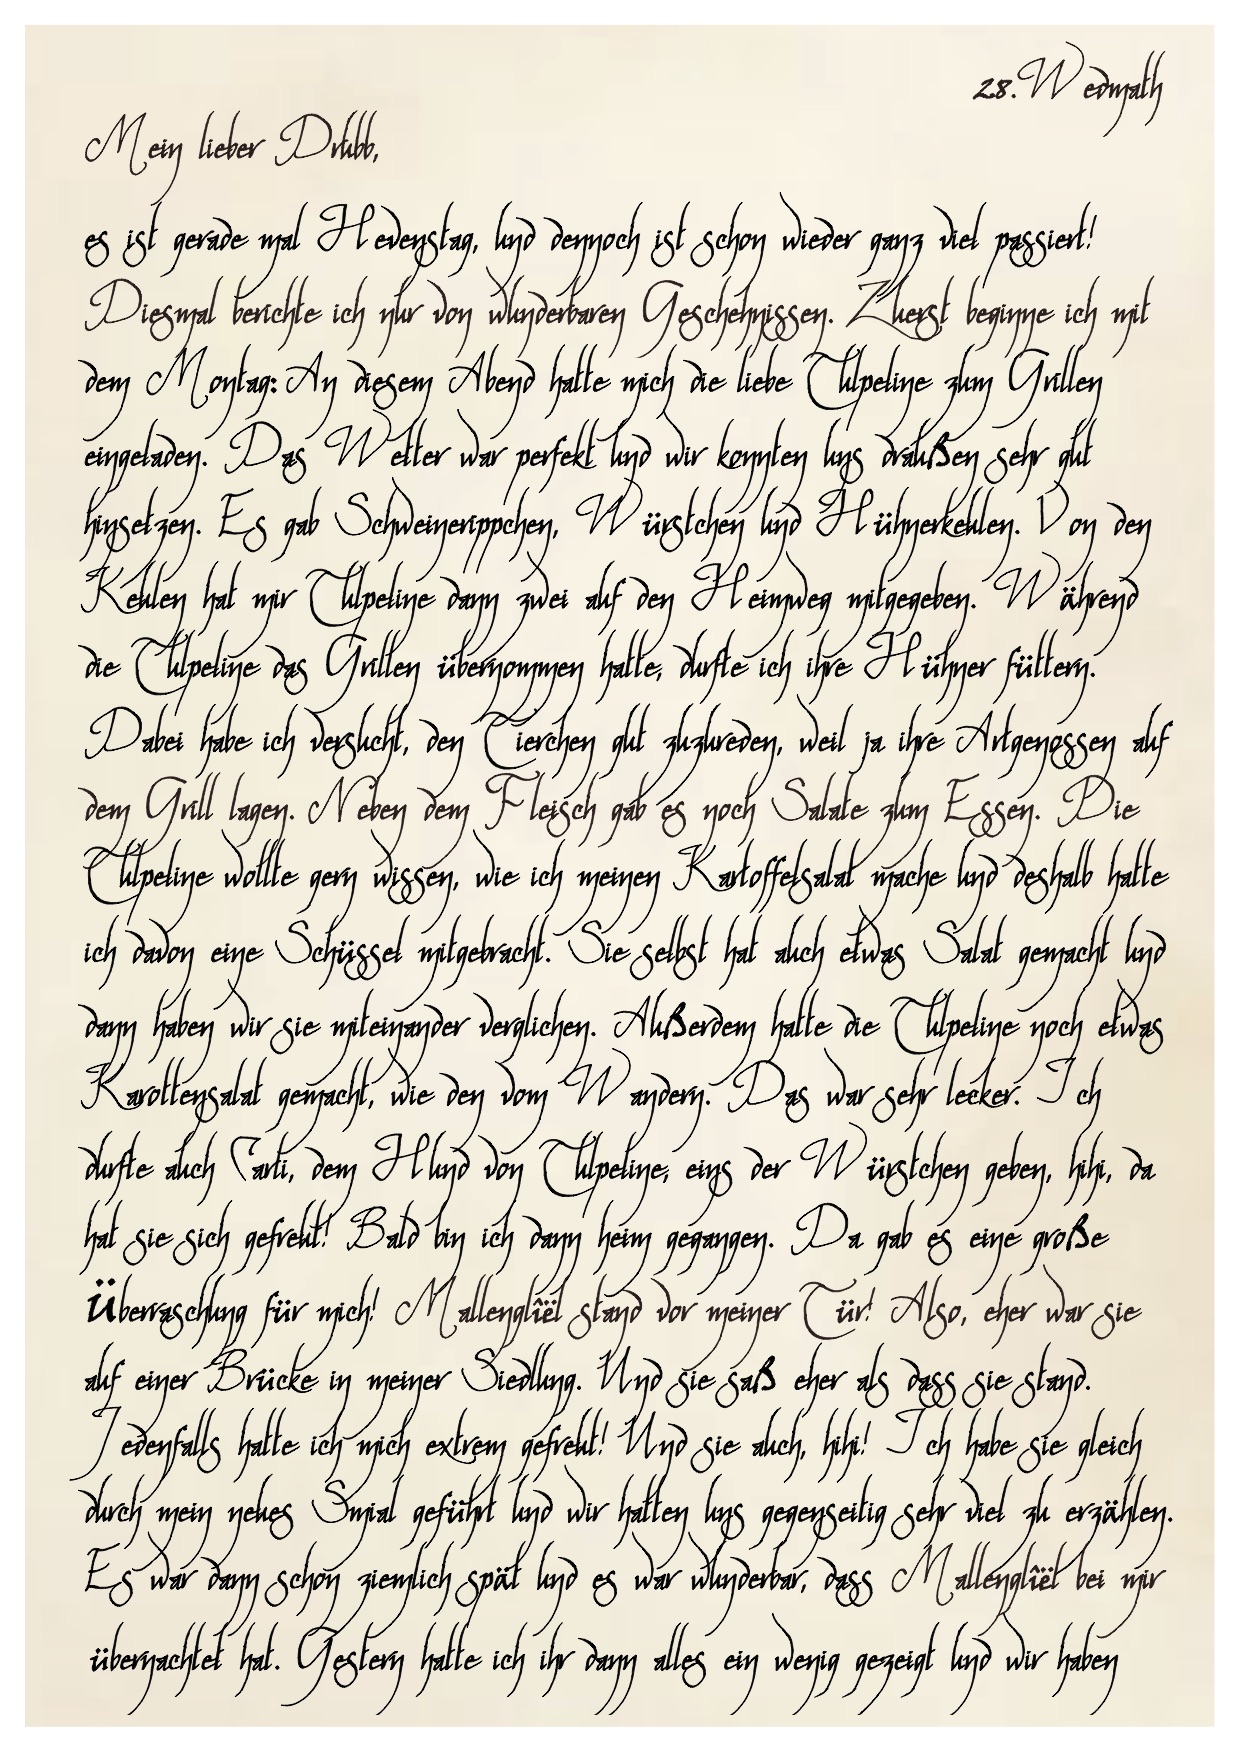 28. Wedmath
Mein lieber Drubb,
es ist gerade mal Hevenstag, und dennoch ist schon wieder ganz viel passiert!
Diesmal berichte ich nur von wunderbaren Geschehnissen. Zuerst beginne ich mit
dem Montag: An diesem Abend hatte mich die liebe Tulpeline zum Grillen
eingeladen. Das Wetter war perfekt und wir konnten uns draußen sehr gut
hinsetzen. Es gab Schweinerippchen, Würstchen und Hühnerkeulen. Von den
Keulen hat mir Tulpeline dann zwei auf den Heimweg mitgegeben. Während
die Tulpeline das Grillen übernommen hatte, durfte ich ihre Hühner füttern.
Dabei habe ich versucht, den Tierchen gut zuzureden, weil ja ihre Artgenossen auf
dem Grill lagen. Neben dem Fleisch gab es noch Salate zum Essen. Die
Tulpeline wollte gern wissen, wie ich meinen Kartoffelsalat mache und deshalb hatte
ich davon eine Schüssel mitgebracht. Sie selbst hat auch etwas Salat gemacht und
dann haben wir sie miteinander verglichen. Außerdem hatte die Tulpeline noch etwas
Karottensalat gemacht, wie den vom Wandern. Das war sehr lecker. Ich
durfte auch Carti, dem Hund von Tulpeline, eins der Würstchen geben, hihi, da
hat sie sich gefreut! Bald bin ich dann heim gegangen. Da gab es eine große
Überraschung für mich! Mallenglîël stand vor meiner Tür! Also, eher war sie
auf einer Brücke in meiner Siedlung. Und sie saß eher als dass sie stand.
Jedenfalls hatte ich mich extrem gefreut! Und sie auch, hihi! Ich habe sie gleich
durch mein neues Smial geführt und wir hatten uns gegenseitig sehr viel zu erzählen.
Es war dann schon ziemlich spät und es war wunderbar, dass Mallenglîël bei mir
übernachtet hat. Gestern hatte ich ihr dann alles ein wenig gezeigt und wir haben